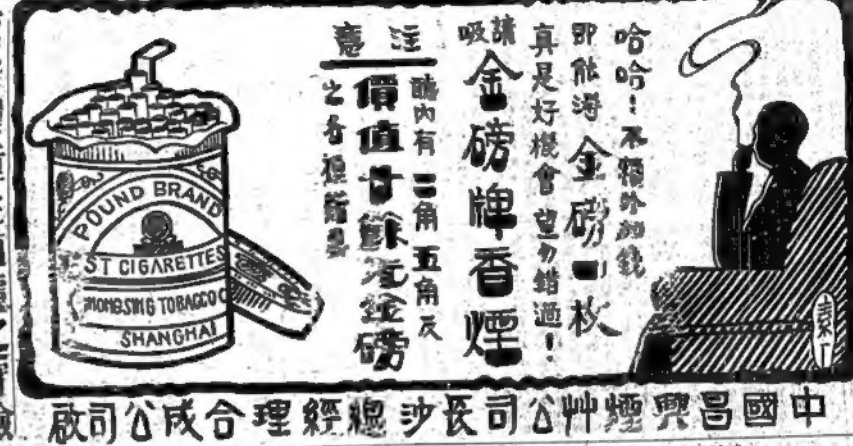 哈哈!不須外加錢
即能得金磅一枚
真是好機會望勿錯過!
請吸
金磅牌香煙
注意
罐內有二角五角及
價值廿餘元金磅
之各種
POUND BRAND
ST CIGARETTES
TOBACCO C
SHANGHAI
中國昌興煙艸公司長沙總經理合成公司啟